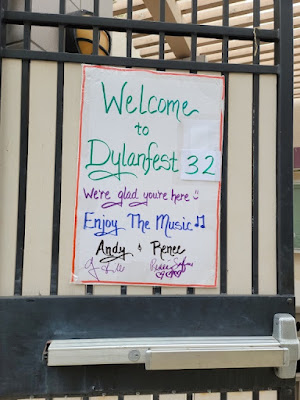 Welcome
to
Dylanfest 32
We're glad you're here
Enjoy The Music
Andy & Renee